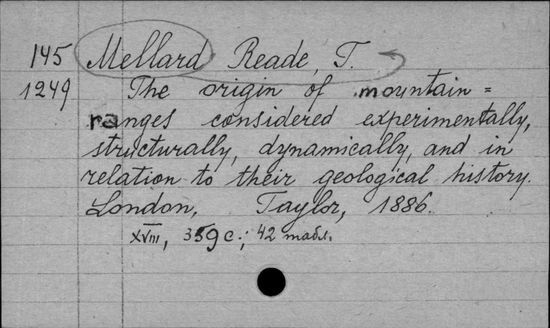 145 Mellard Reade, T.
1249 The origin of mountain=
ranges considered experimentally,
structurally, dynamically, and in
relation to their geological history.
London, Taylor, 1886.
XVIII, 359 c.; 42 табл.